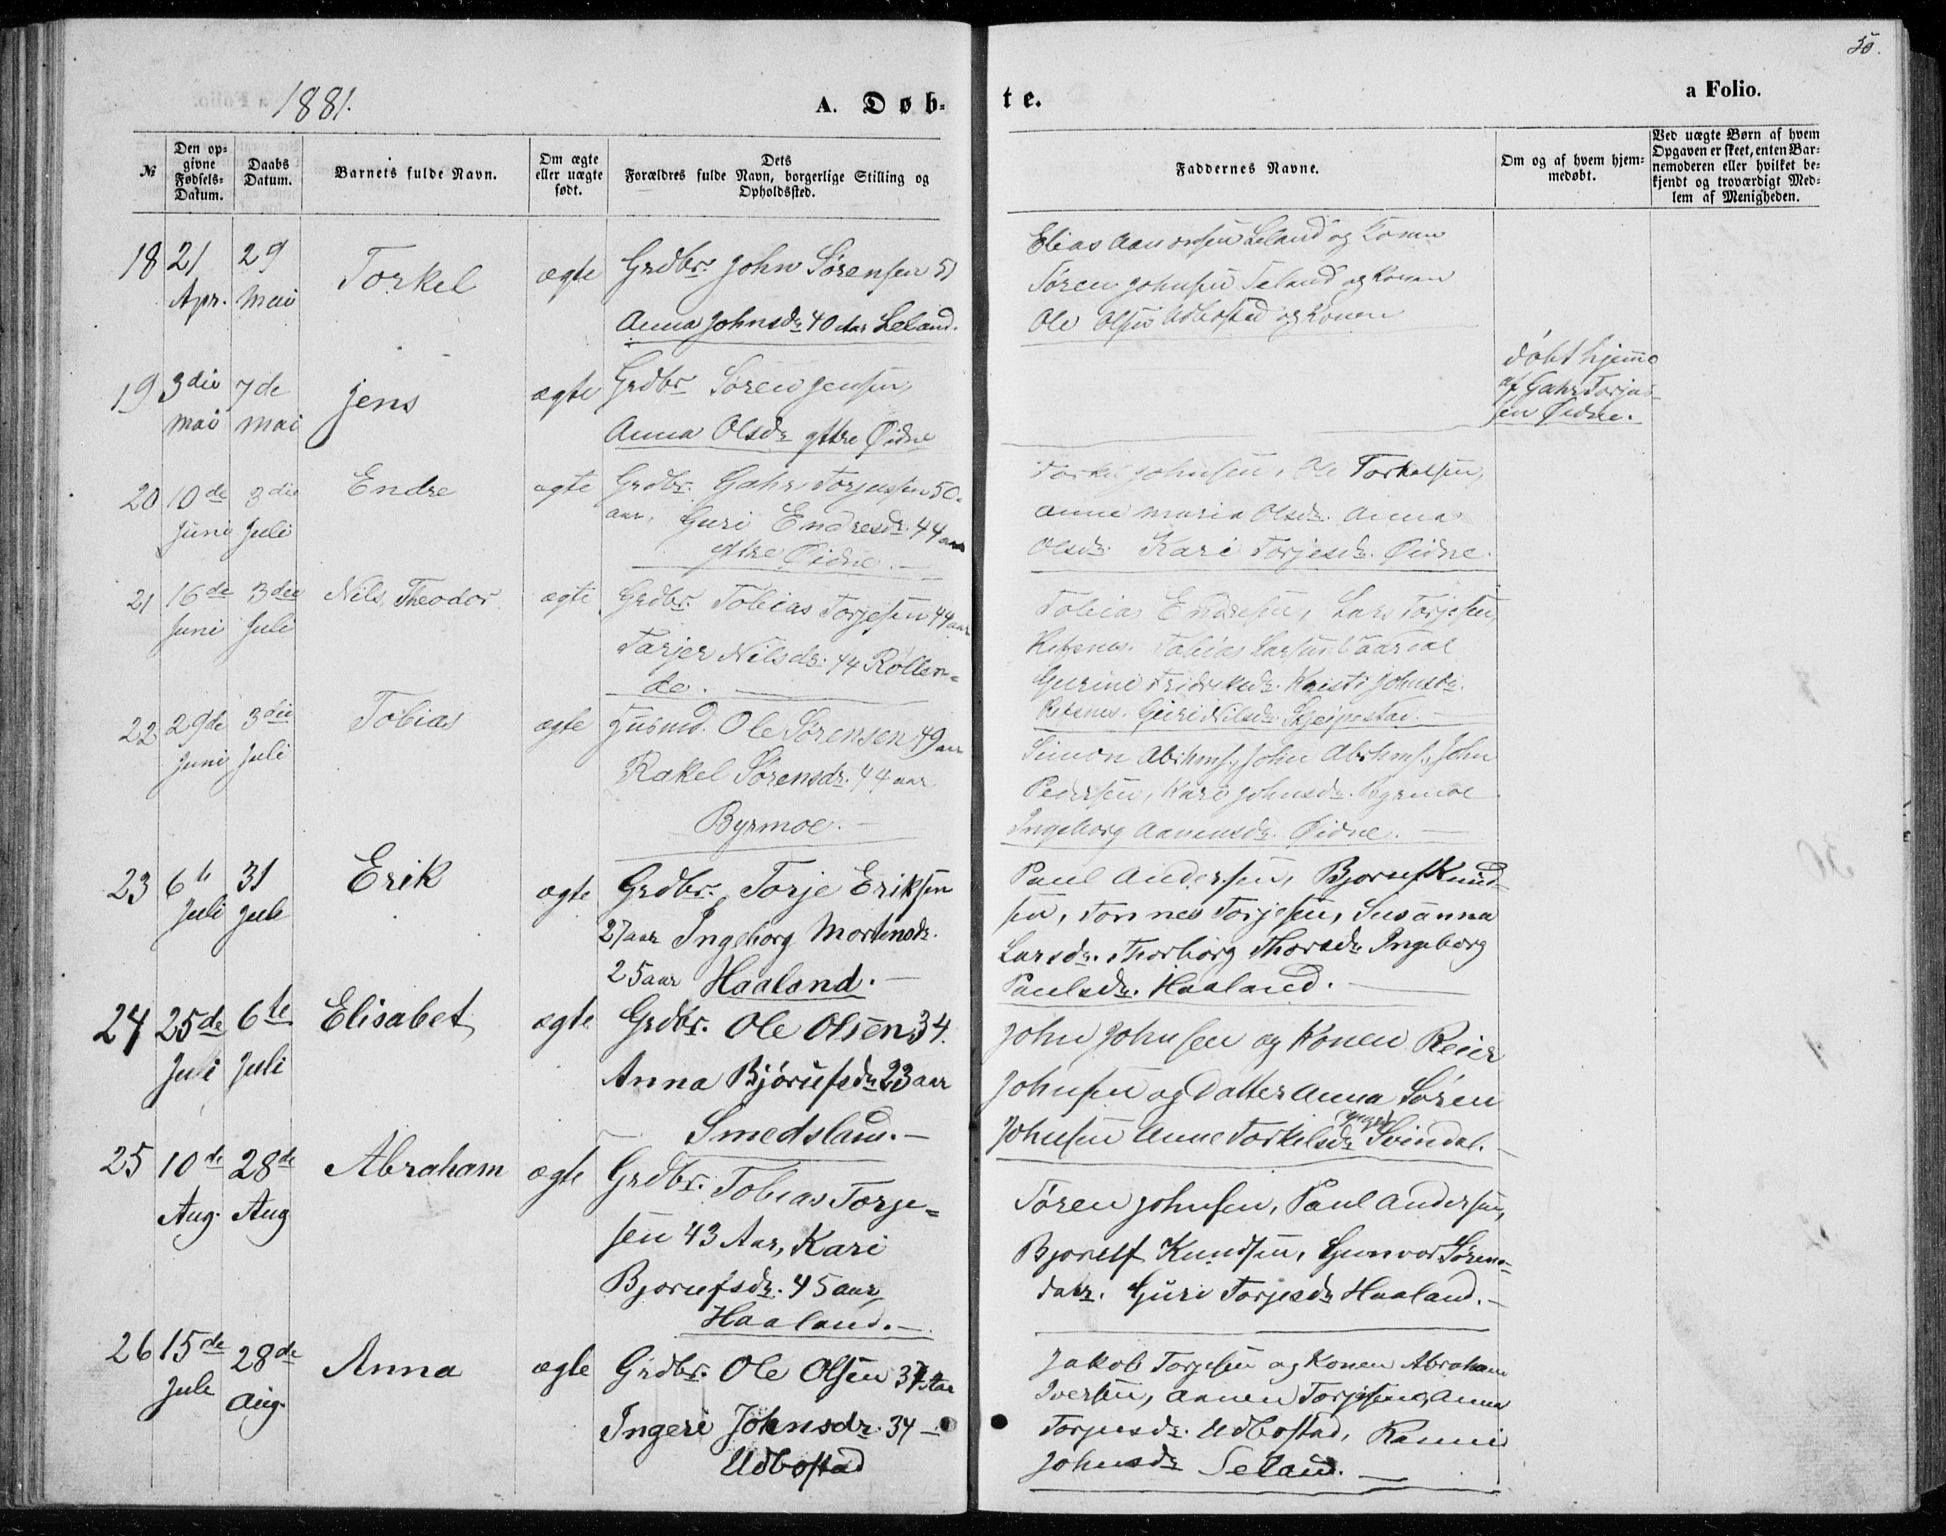 50.
1881.
A. Døb-
te.
a Folio.
№
Den op-
givne
Fødsels-
Datum.
Daabs
Datum.
Barnets fulde Navn.
Om ægte
eller uægte
født.
Dets
Forældres fulde Navn, borgerlige Stilling og
Opholdssted.
Faddernes Navne.
Om og af hvem hjem-
medøbt.
Ved uægte Børn af hvem
Opgaven er skeet, enten Bar-
nemoderen eller hvilket be-
kjendt og troværdigt Med-
lem af Menigheden.
18 21 Apr. 29 Mai Torkel ægte
Grdbr. John Sørensen 51
Anna Johnsdr 40 Aar Seland.
Elias Seland og Konen
Søren Johnsen Seland og Konen
Ole Olsen Udbostad og Konen
19 3die Mai 7de Mai Jens ægte
Grdbr Søren Jensen
Anna Olsdr ytre Øidne
døbt hjemme
af Gahr Torjus-
sen Øidne.
20 10de Juni 3die Juli Endre ægte
Grdbr. Gahr Torjussen 50
aar, Guri Endresdr. 44 aar
ytre Øidne.
Torkel Johnsen, Ole Torkelsen,
Anne Maria Olsdr. Anna
Olsdr. Kari Torjesdr. Øidne.
21 16de Juni 3die Juli Nils Theodor ægte
Grdbr. Tobias Torjesen 44 aar
Tarjer Nilsdr. 44 Røllen-
de.
Tobias Endresen, Lars Torjesen,
Tobias Larsen
Gurine Fridriksdr. Kristi Johnsdr.
Guri Nilsdr
22 29de Juni 3die Juli Tobias ægte
Husmd. Ole Sørensen 49 aar
Rakel Sørensdr. 44 aar
Byrmoe.
Simon Abrhms., John Abrhms., John
Pedersen, Kari Johnsdr. Byrmoe
Ingeborg Aanensdr. Øidne.
23 6te Juli 31 Juli Erik ægte
Grdbr. Torje Eriksen
27 aar Ingeborg Mortensdr.
25 aar Haaland.
Paul Andersen, Bjoruf Knud-
sen, Tønnes Torjesen, Susanna
Larsdr. Thorborg Thorsdr Ingeborg
Paulsdr. Haaland.
24 25de Juli 6te Juli Elisabet ægte
Grdbr. Ole Olsen 34.
Anna Bjørufsdr 23 aar
Smedsland.
John Johnsen og Konen Reier
Johnsen og Datter Anna Søren
Johnsen Anne Torkelsdr yngst Svindal.
25 10de Aug. 28de Aug Abraham ægte
Grdbr. Tobias Torje-
sen 43 Aar, Kari
Bjorufsdr. 45 aar
Haaland.
Søren Johnsen, Paul Andersen,
Bjorulf Knudsen, Gunvor Sørens-
datr. Guri Torjesdr Haaland.
26 15de Jule 28de Aug. Anna ægte
Grdbr. Ole Olsen 37 Aar
Ingeri Johnsdr. 34
Udbostad
Jakob Torjesen og Konen Abraham
Iversen, Aanen Torjesen, Anna
Torjusdr. Udbostad, Rannei
Johnsdr Seland.